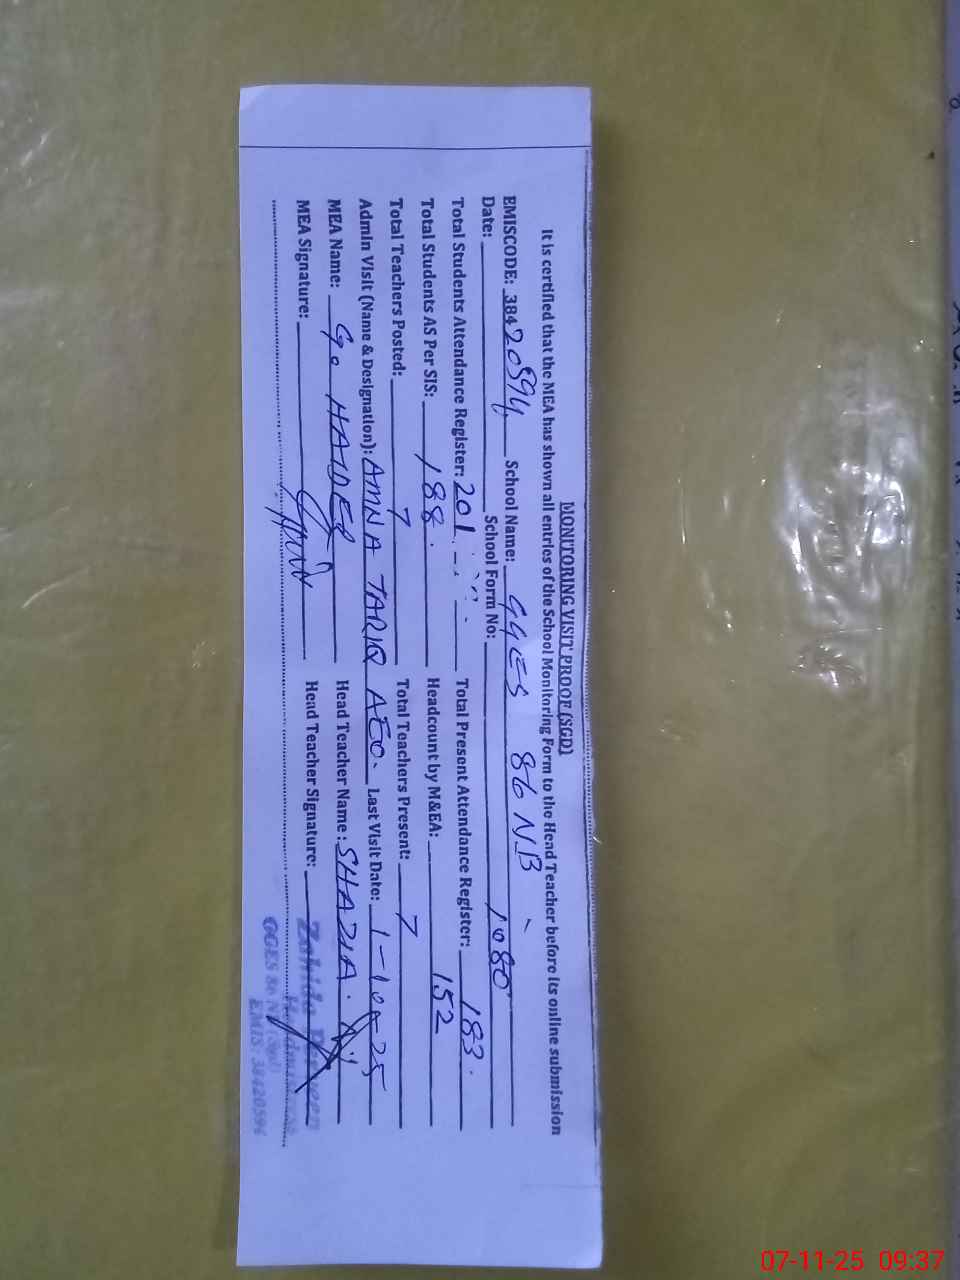 MONITORING VISIT PROOF (SGD)
It is certified that the MEA has shown all entries of the School Monitoring Form to the Head Teacher before its online submission
EMISCODE: 38420594 School Name: GGES 86 NB
Date: School Form No: 1080
Total Students Attendance Register: 201 Total Present Attendance Register: 183.
Total Students AS Per SIS: 188. Headcount by M&EA: 152
Total Teachers Posted: 7 Total Teachers Present: 7
Admin Visit (Name & Designation): AMNA TARIQ AEO. Last Visit Date: 1-10-25
MEA Name: G. HAIDER Head Teacher Name: SHAZIA.
MEA Signature: Head Teacher Signature:
Zahida Parveen
Headmistress
GGES 86 NB (Sgd)
EMIS: 38420594
07-11-25 09:37